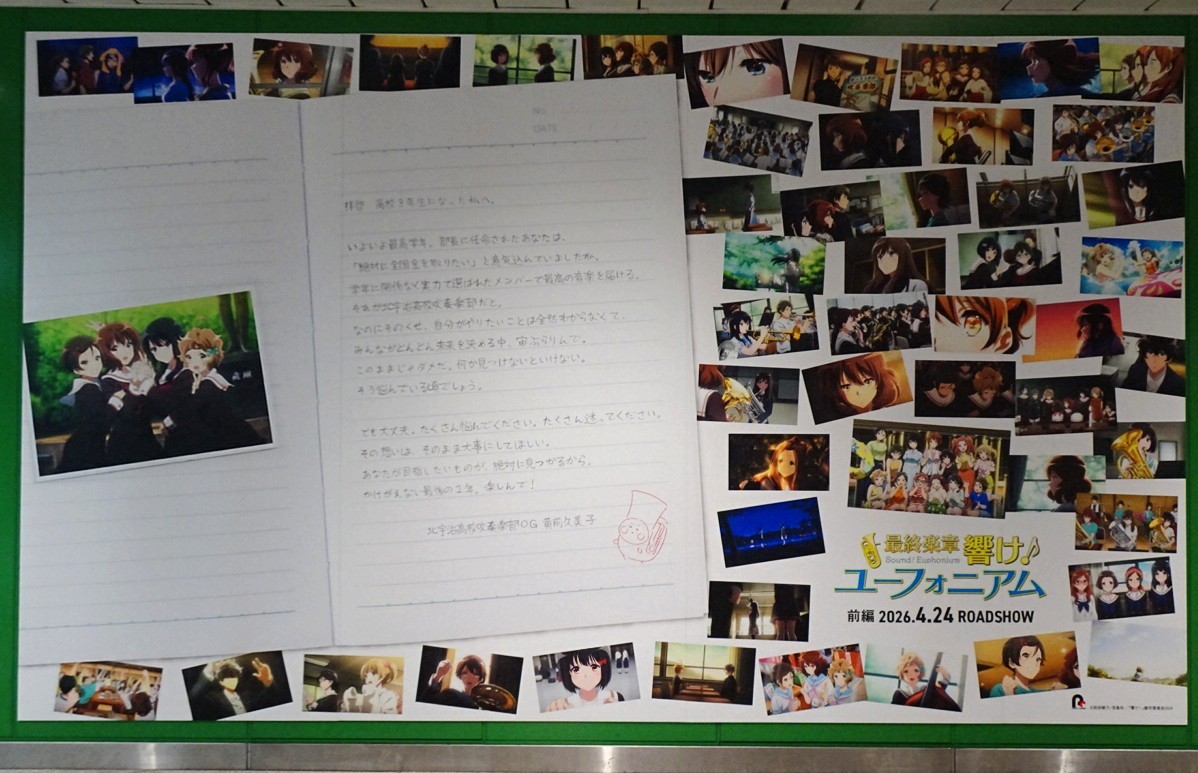 拝啓 高校3年生になった私へ。
いよいよ最高学年。部長に任命されたあなたは、
「絶対に全国金を取りたい」と意気込んでいましたか。
学年に関係なく実力で選ばれたメンバーで最高の音楽を届ける。
それが北宇治高校吹奏楽部だと。
なのにそのくせ、自分がやりたいことは全然わからなくて、
みんながどんどん未来を決める中、宙ぶらりんで。
このままじゃダメだ。何か見つけないといけない。
そう悩んでいる頃でしょう。
でも大丈夫。たくさん悩んでください。たくさん迷ってください。
その想いは、そのまま大事にしてほしい。
あなたが目指したいものが、絶対に見つかるから。
かけがえない最後の1年。楽しんで!
北宇治高校吹奏楽部OG 黄前久美子
No.
DATE
最終楽章 響け!
Sound! Euphonium
ユーフォニアム
前編 2026.4.24 ROADSHOW